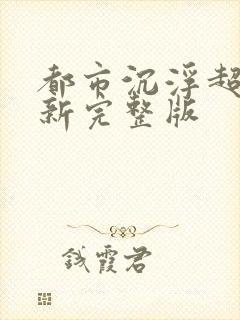 都市沉浮超
新完整版
钱霞君